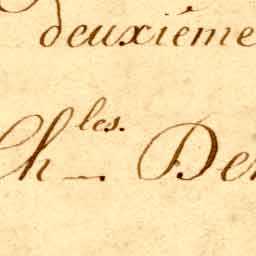 deuxiéme
Ch les. De